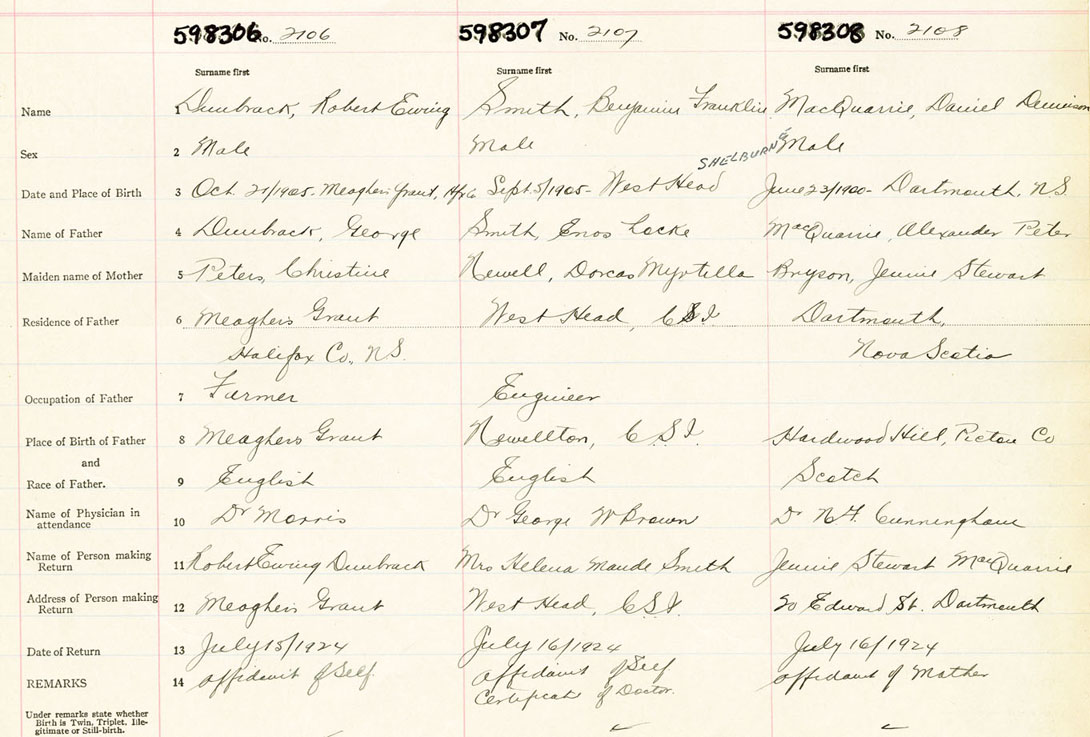 598306 No. 2106 598307 No. 2107 598308 No. 2108
Surname first Surname first Surname first
Name 1 Dunbrack, Robert Ewing Smith, Benjamin Franklin MacQuarrie, Daniel Dennison
SHELBURNE
Sex 2 Male Male Male
Date and Place of Birth 3 Oct. 21/1905. Meaghers Grant, Hfx Co Sept. 5/1905 - West Head June 23/1900 - Dartmouth. N.S.
Name of Father 4 Dunbrack, George Smith, Enos Locke MacQuarrie, Alexander Peter
Maiden name of Mother 5 Peters, Christine Newell, Dorcas Myrtilla Bryson, Jennie Stewart
Residence of Father 6 Meaghers Grant West Head, C.S.I. Dartmouth,
Halifax Co., N.S. Nova Scotia
Occupation of Father 7 Farmer Engineer
Place of Birth of Father 8 Meaghers Grant Newellton, C.S.I. Hardwood Hill, Pictou Co
and
Race of Father. 9 English English Scotch
Name of Physician in
attendance 10 Dr Morris Dr George W Brown Dr Cunningham
Name of Person making
Return 11 Robert Ewing Dunbrack Mrs Helena Maude Smith Jennie Stewart MacQuarrie
Address of Person making
Return 12 Meaghers Grant West Head, C.S.I. 20 Edward St. Dartmouth
Date of Return 13 July 15/1924 July 16/1924 July 16/1924
REMARKS 14 Affidavit of Self Affidavit of Self Affidavit of Mother
Certificate of Doctor.
Under remarks state whether
Birth is Twin, Triplet, Ille-
gitimate or Still-birth.